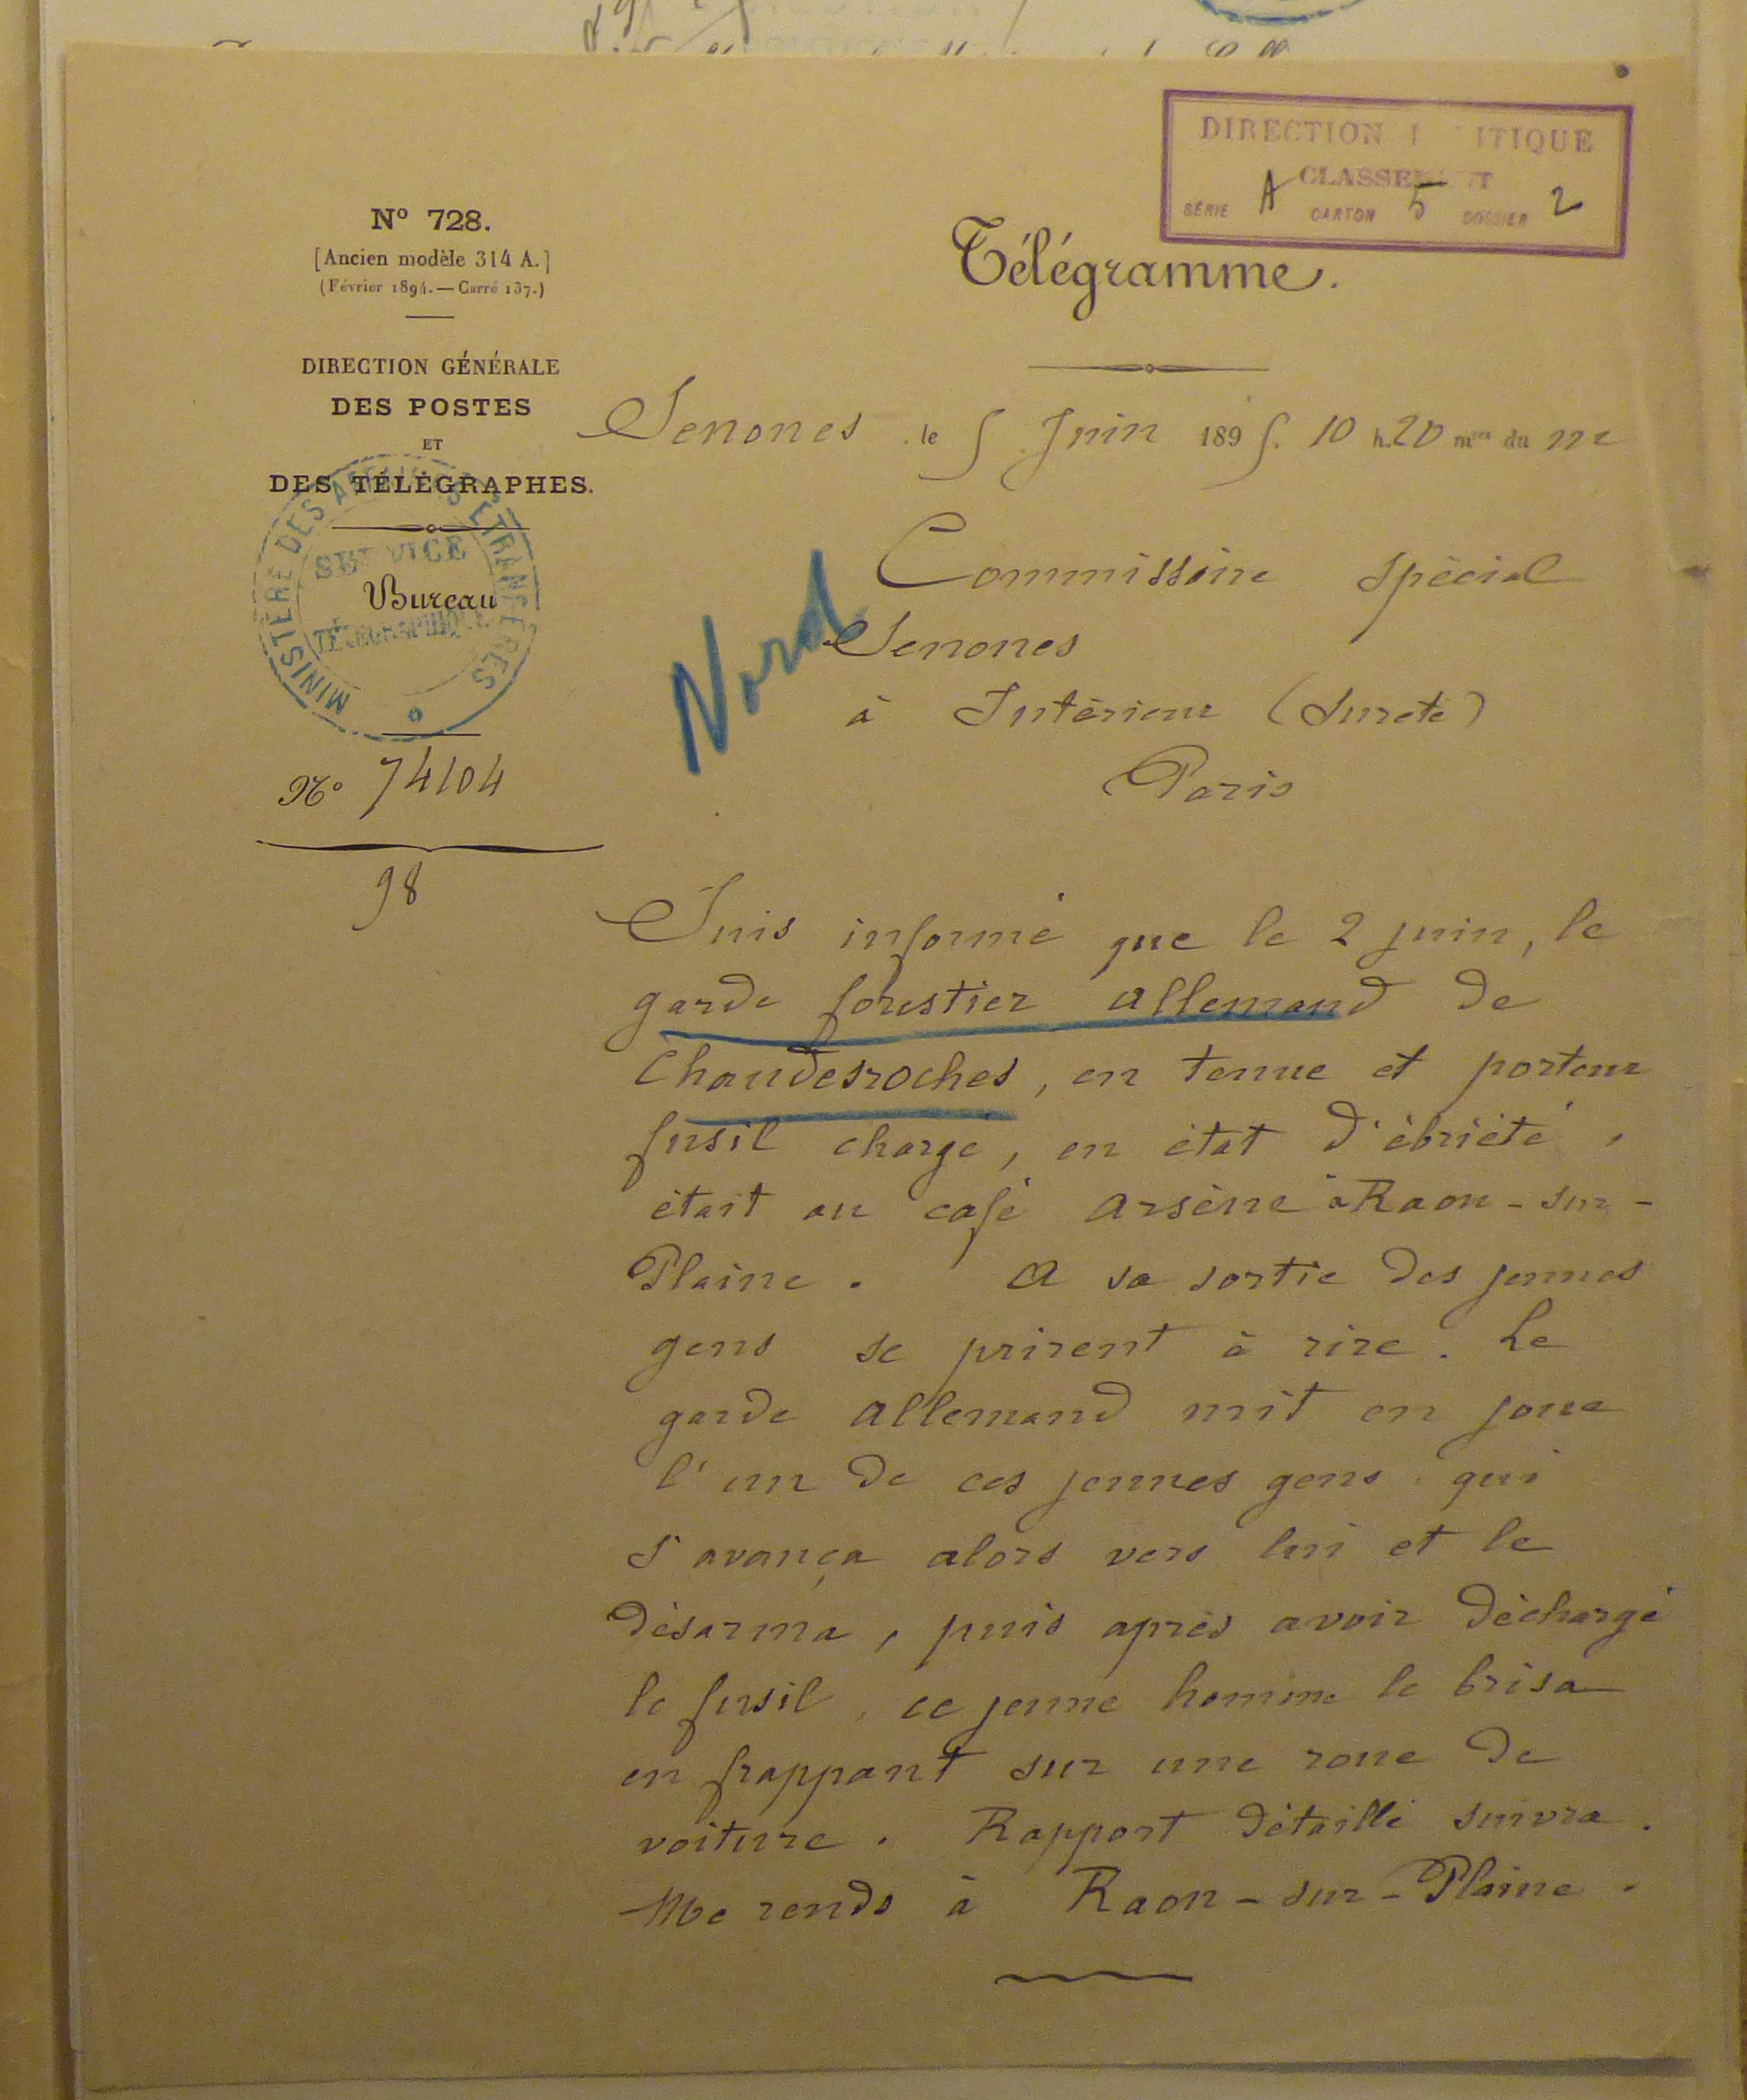 DIRECTION ITIQUE
CLASSEMENT
SÉRIE A CARTON 5 DOSSIER 2
N° 728.
[Ancien modèle 314 A.]
(Février 1894. — Carré 137.)
DIRECTION GÉNÉRALE
DES POSTES
ET
DES TÉLÉGRAPHES.
MINISTÈRE DES AFFAIRES ÉTRANGÈRES
SERVICE
TÉLÉGRAPHIQUE
Bureau
N° 74104
98
Télégramme.
Senones le 5 Juin 1895. 10 h. 20 mes du m
Nord
Commissaire spécial
Senones
à Intérieur (Sureté)
Paris
Suis informé que le 2 juin, le
garde forestier allemand de
Chaudesroches, en tenue et porteur
fusil chargé, en état d'ébriété,
était au café Arsène à Raon-sur-
Plaine. A sa sortie des jeunes
gens se prirent à rire. Le
garde allemand mit en joue
l'un de ces jeunes gens qui
s'avança alors vers lui et le
désarma, puis après avoir déchargé
le fusil, ce jeune homme le brisa
en frappant sur une roue de
voiture. Rapport détaillé suivra.
Me rends à Raon-sur-Plaine.